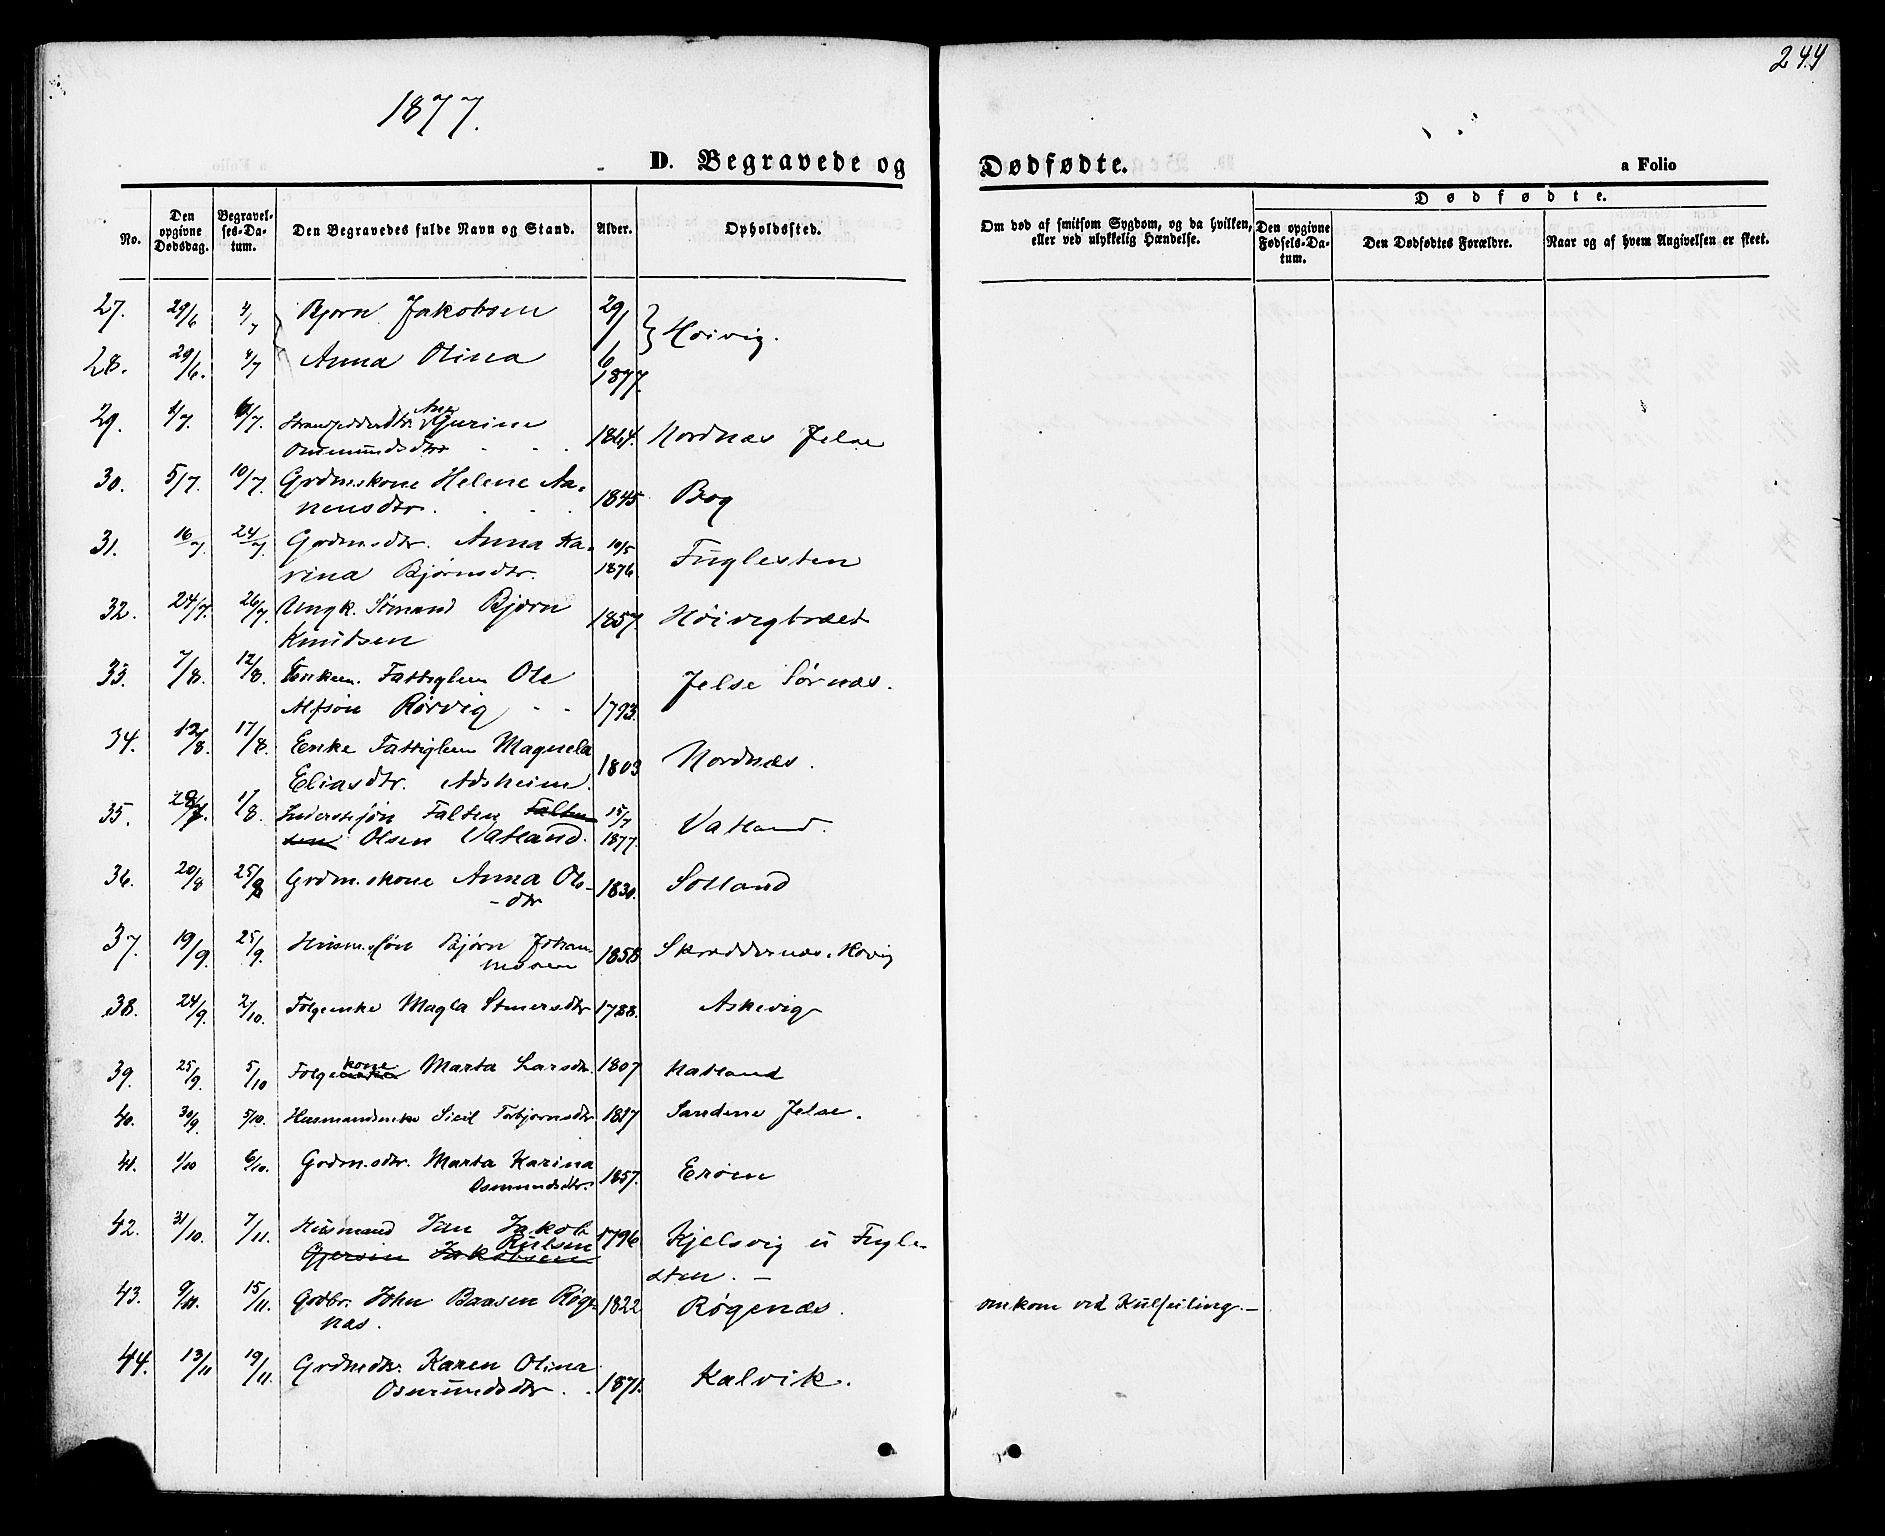 244
1877.
D. Begravede og Dødfødte.
a Folio
No.
Den opgivne Dødsdag.
Begravelses-Datum.
Den Begravedes fulde Navn og Stand.
Alder.
Opholdssted.
Om død af smitsom Sygdom, og da hvilken, eller ved ulykkelig Hændelse.
Dødfødte.
Den opgivne Fødsels-Datum.
Den Dødfødtes Forældre.
Naar og af hvem Angivelsen er skeet.
27. 29/6 4/7 Bjørn Jakobsen 29/
28. 29/6. 4/7 Anna Olina 6 1877. Høivig.
29. 1/7. 6/7. Ane Gurine
Ommundsdtr 1864. Nordnæs Jelse
30. 5/7. 10/7. Grdmskone Helene Aa-
nensdtr. 1845 Bog
31. 16/7. 24/7. Grdmsdtr. Anna Ka- 10/5
rina Bjørnsdtr. 1876. Fuglesten
32. 24/7. 26/7. Ungk. Sømand Bjørn
Knudsen 1857. Høivigtræet
33. 7/8. 12/8. Enkem. Fattiglem Ole
Alfsøn Rørvig 1793. Jelse Sørnæs.
34. 12/8. 17/8. Enke Fattiglem Magnela
Eliasdtr. Adsheim. 1803 Nordnæs.
35. 28/7. 1/8. Inderstesøn Falten Falten- 15/7
sen Olsen Vatland. 1877. Vatland.
36. 20/8 25/8 Grdm.skone Anna Ols-
-dtr 1830. Solland
37. 19/9. 25/9. Husm.søn Bjørn Johan
nessen 1858 Skræddernæs. Høvig
38. 24/9. 2/10. Folgeenke Magla Steinersdtr 1788. Askevig
39. 25/9. 5/10 Folgekone Marta Larsdtr. 1807 Hatland
40. 30/9. 5/10. Husmandsenke Sicil Torbjørnsdtr. 1817 Sandene Jelse.
41. 1/10 6/10. Grdm.sdtr. Marta Karina
Osmundsdtr. 1857. Erøen
42. 31/10. 7/11. Husmand Jan Jakob
Rulsen
Gjersin Jakobsen 1796 Kjelsvig u Fugle-
sten. —
43. 9/11. 15/11. Grdbr. John Baasen Røge-
næs. 1822 Røgenæs. omkom ved Kulseiling. —
44. 13/11 19/11. Grdmsdtr. Karen Olina
Osmundsdtr. 1871. Kalvik.